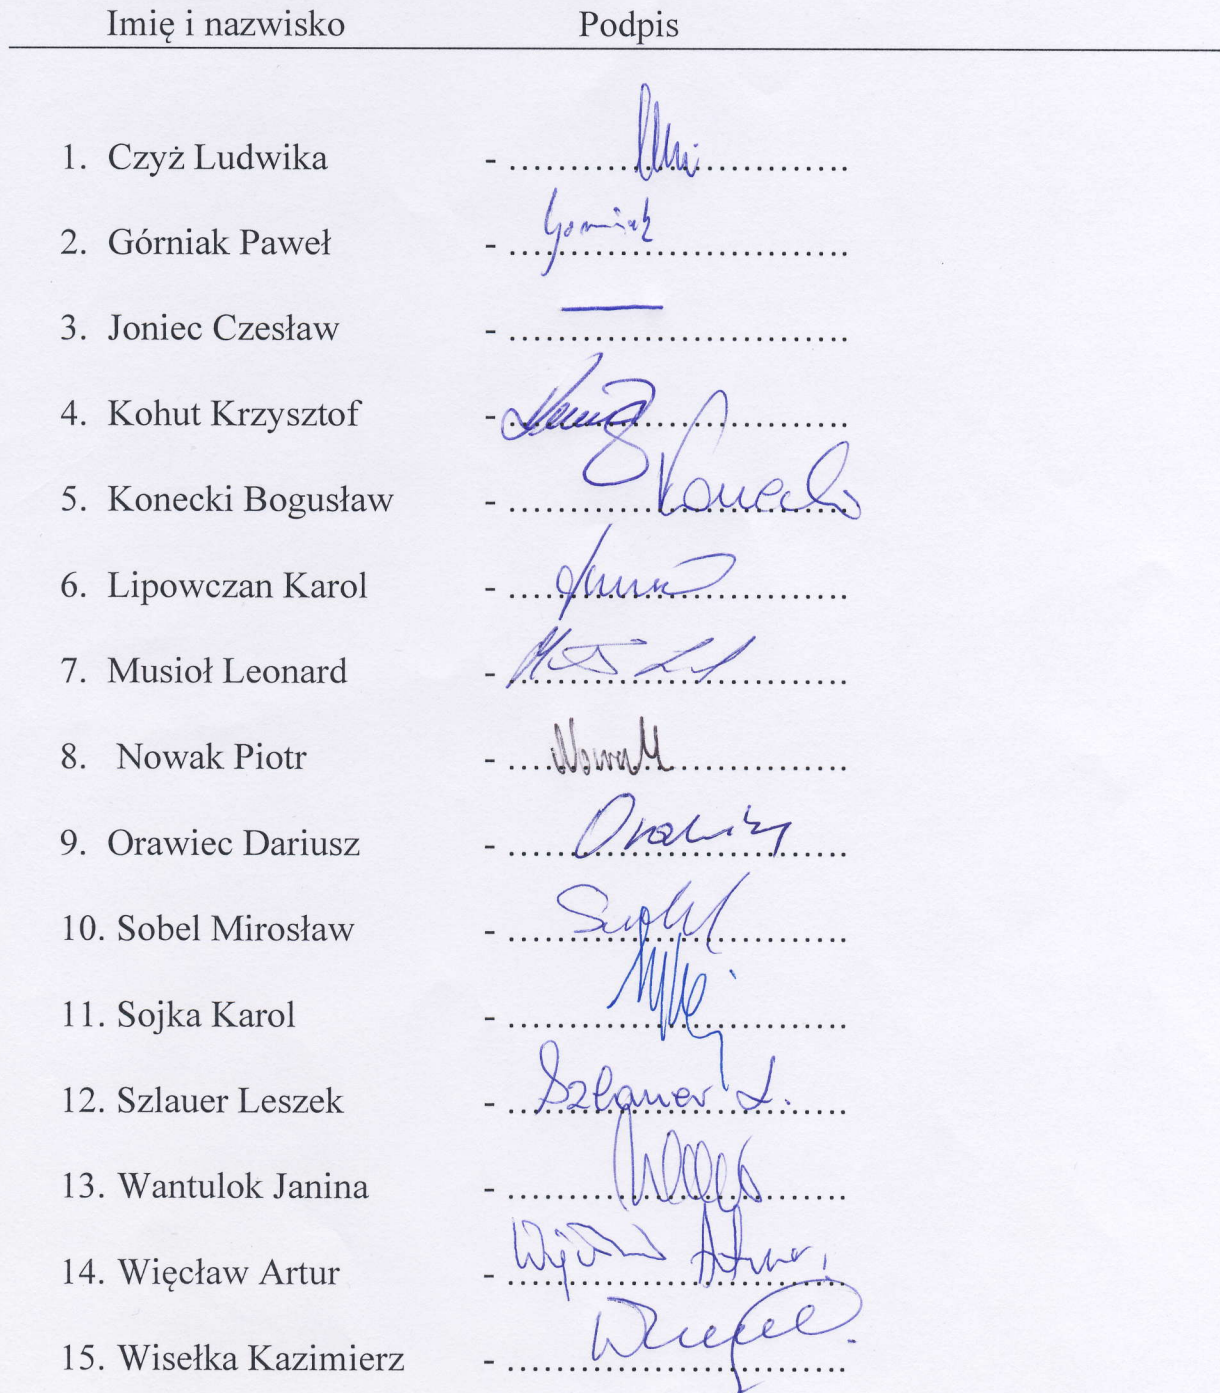 Imię i nazwisko Podpis
1. Czyż Ludwika - ..............................
2. Górniak Paweł - .............................. Górniak
3. Joniec Czesław - ..............................
4. Kohut Krzysztof - ..............................
5. Konecki Bogusław - .............................. Konecki
6. Lipowczan Karol - ..............................
7. Musioł Leonard - ..............................
8. Nowak Piotr - .............................. Nowak
9. Orawiec Dariusz - ..............................
10. Sobel Mirosław - ..............................
11. Sojka Karol - ..............................
12. Szlauer Leszek - .............................. Szlauer L.
13. Wantulok Janina - ..............................
14. Więcław Artur - .............................. Artur
15. Wisełka Kazimierz - ..............................